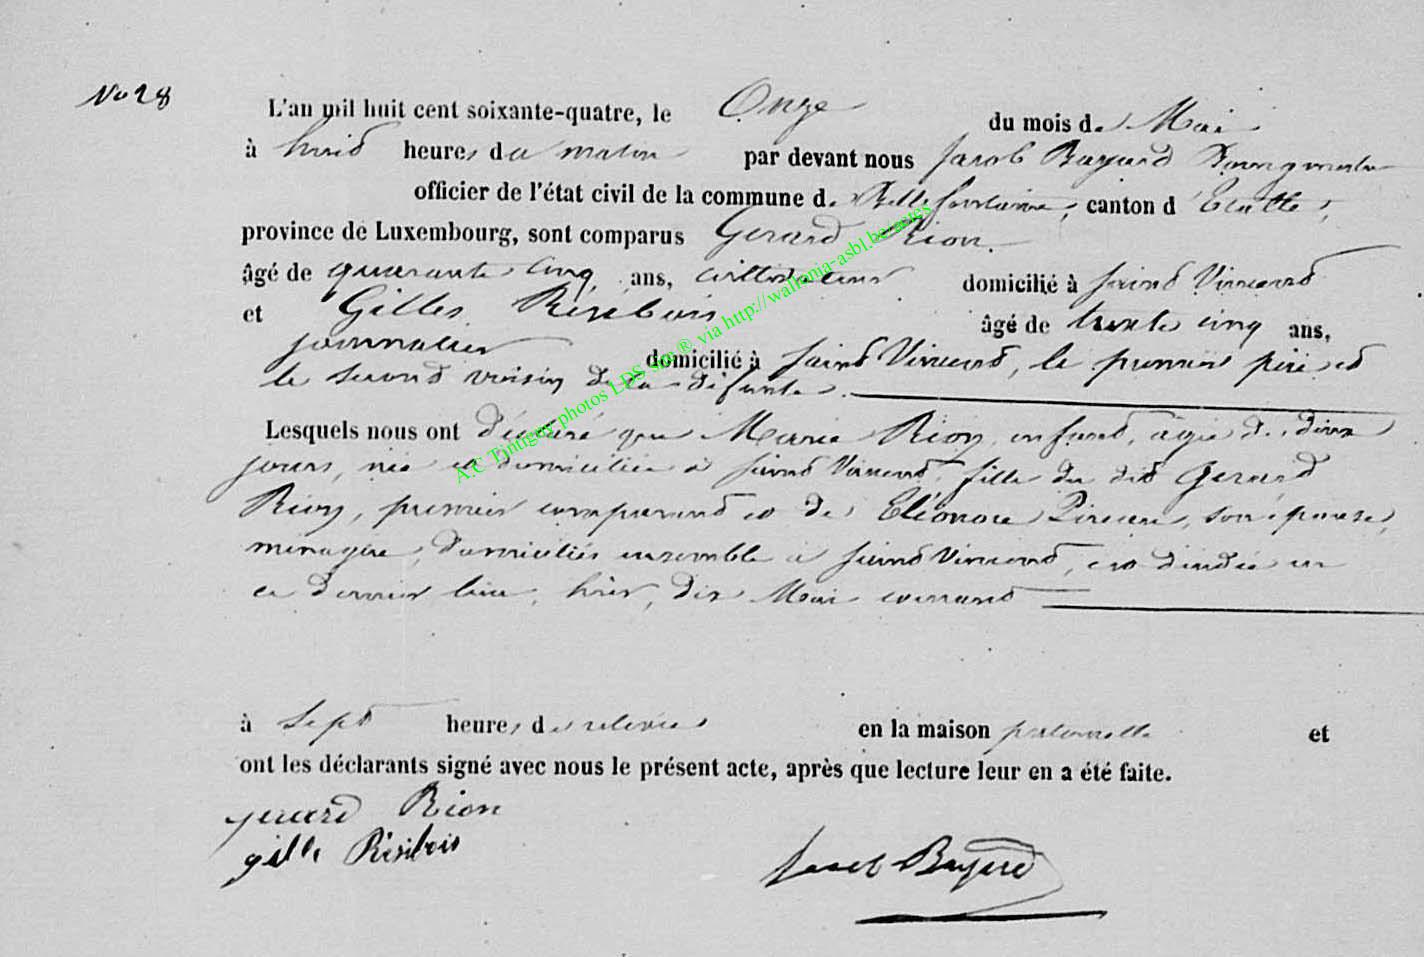 No 28
L'an mil huit cent soixante-quatre, le Onze du mois de Mai
à huit heures du matin par devant nous Jacob Bayard Bourgmestre
officier de l'état civil de la commune de Bellefontaine, canton d'Etalle,
province de Luxembourg, sont comparus Gerard Rion
âgé de quarante cinq ans, cultivateur domicilié à Saint Vincent
et Gilles Résibois âgé de trente cinq ans,
journalier domicilié à Saint Vincent, le premier père et
le second voisin de la défunte.
Lesquels nous ont déclaré que Marie Rion, enfant, agée de deux
jours, née et domiciliée à Saint Vincent, fille du dit Gerard
Rion, premier comparant et de Eléonore, son épouse,
ménagère, domiciliés ensemble à Saint Vincent, est décédée en
ce dernier lieu, hier, dix Mai courant
à Sept heures de relevée en la maison paternelle et
ont les déclarants signé avec nous le présent acte, après que lecture leur en a été faite.
gerard Rion
gille Résibois
Jacob Bayard
A.C Tintigny photos LDS sur ® via http://wallonia-asbl.be/actes